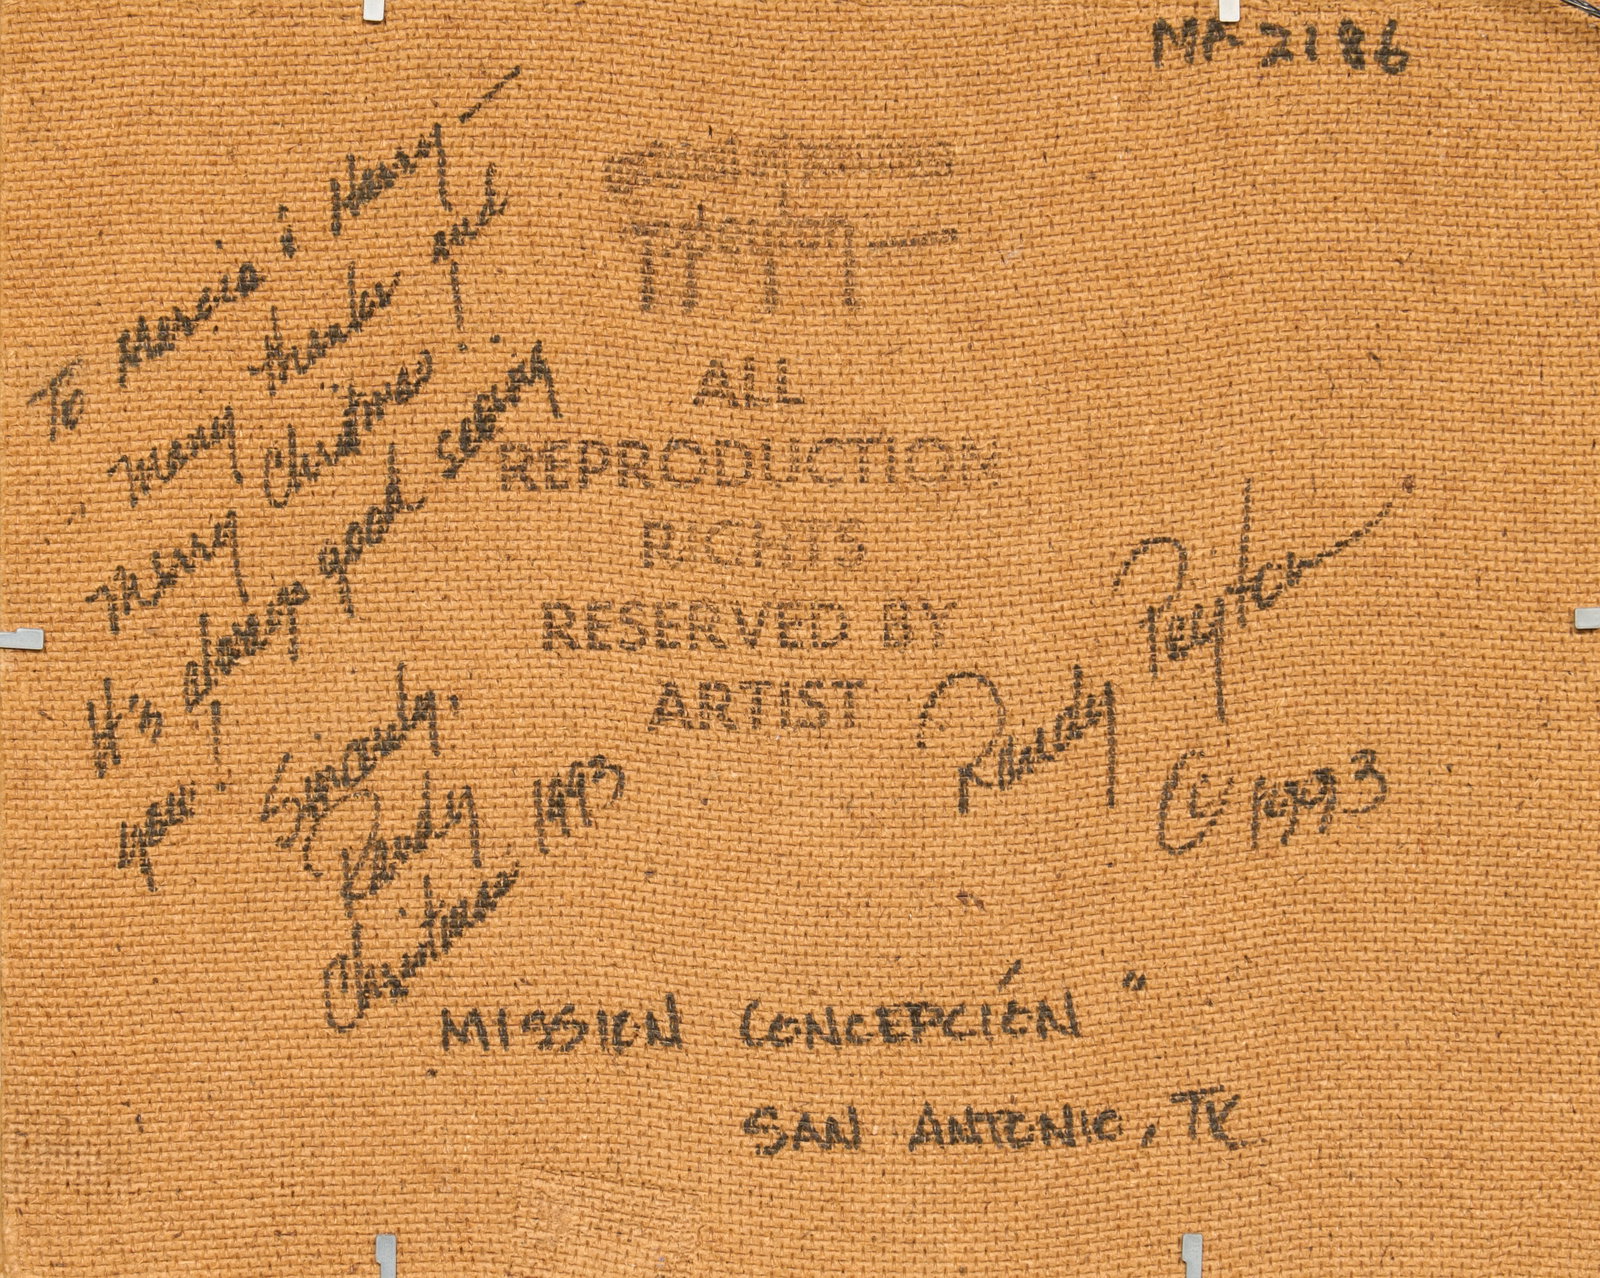 MP-2186
To Marcia & Harry —
many thanks and
Merry Christmas!
It's always good seeing
you!
Sincerely,
Randy
Christmas 1993
ALL
REPRODUCTION
RIGHTS
RESERVED BY
ARTIST
Randy Peyton
© 1993
"MISSION CONCEPCIÓN"
SAN ANTONIO, TX